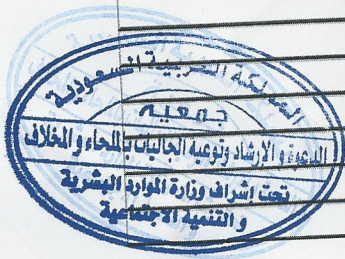 المملكة العربية السعودية
جمعية
الدعوة والإرشاد وتوعية الجاليات باللحاء والمخلاف
تحت إشراف وزارة الموارد البشرية
و التنمية الاجتماعية